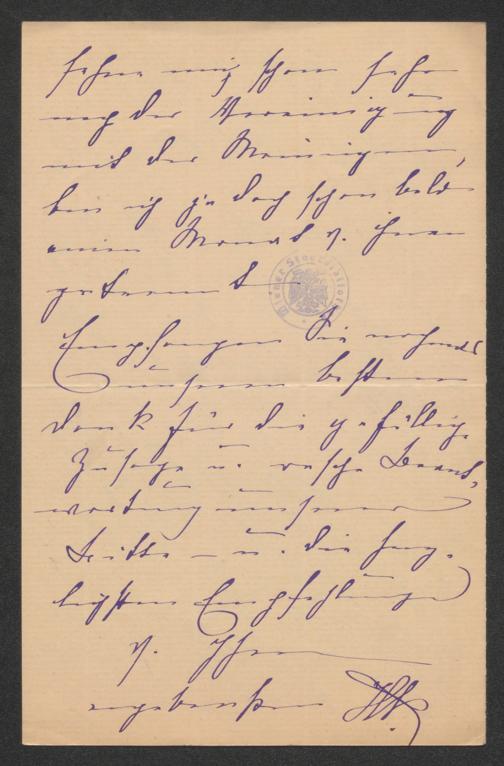 sehne mich schon sehr
nach der Vereinigung
mit den Meinigen,
bin ich ja doch schon bald
einen Monat v. ihnen
getrennt.
Wiener Stadtbibliothek
Empfangen Sie nochmals
unseren besten
Dank für die gefällige
Zusage u. rasche Beant-
wortung unserer
Bitte – u. die herz-
lichsten Empfehlungen
v. Ihrem
ergebensten